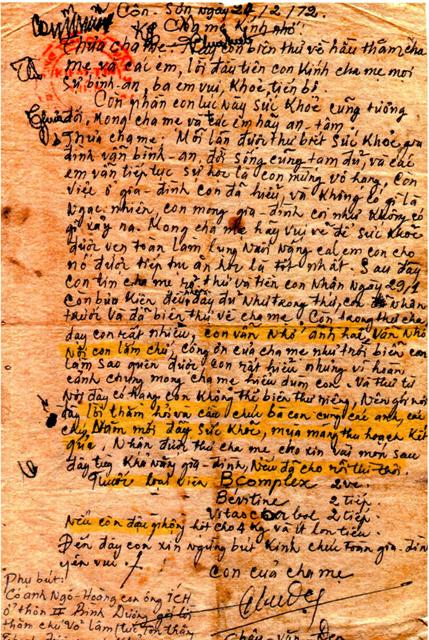 Côn-Sơn ngày 24/2/72.
Kg Cha mẹ Kính nhớ!
Thưa cha mẹ Nay con biên thư về hầu thăm cha
mẹ và các em, lời đầu tiên con Kính cha mẹ mọi
sự bình-an, ba em vui, Khỏe, tiến bộ.
Còn phần con lúc này sức Khỏe cũng tương
đối, mong cha mẹ và các em hãy an-tâm.
Thưa cha mẹ. Mỗi lần được thư biết sức Khỏe, gia
đình vẫn bình-an, đời sống cũng tạm đủ, và các
em vẫn tiếp tục sự học là con mừng vô hạng, Còn
việc ở gia-đình con đã hiểu, và Không có gì là
ngạc nhiên, con mong gia-đình coi như Không có
gì xảy ra. Mong cha mẹ hãy vui vẻ để sức Khỏe
được vẹn toàn làm lụng nuôi nấng các em con cho
nó được tiếp tục ăn học là tốt nhất. Sau đây
con tin cha mẹ rõ thư và tiền con nhận ngày 29/1
con bửu Kiện đều đầy đủ như trong thư, con nhận
trước và đã biên thư về cha mẹ. Còn trong thư cha
dạy con rất nhiều, con vẫn nhớ anh hai Văn nhớ
nội con lắm chứ, công ơn của cha mẹ như trời biển con
làm sao quên được, con rất hiểu nhưng vì hoàn
cảnh chung mong cha mẹ hiểu dùm con. Và thư từ
nơi đây có hạng con Không thể biên thư riêng, nên gởi nơi
đây lời thăm hỏi và cầu chúc bà con cùng các anh, các
chị, Năm mới đầy sức Khỏe, mùa màng thu hoạch Kết
quả. Nhân được thư cha mẹ cho xin vài món sau
đây tùy Khả năng gia-đình, nếu có cho rồi thì thôi.
Thuốc loại viên Bcomplex 2 ve.
Bévitine 2 tiếp
Vitascorbol 2 tiếp.
Nếu còn đậu phộng hột cho 4 kg và ít hòn tiêu.
Đến đây con xin ngừng bút Kính chúc toàn gia-đình
yên vui.
Con của cha mẹ
Phụ bút:
Có anh Ngô-Hoàng con ông ÍCH
ở thôn II Bình Dương gởi lời
thăm chú Võ Lâm
Văn